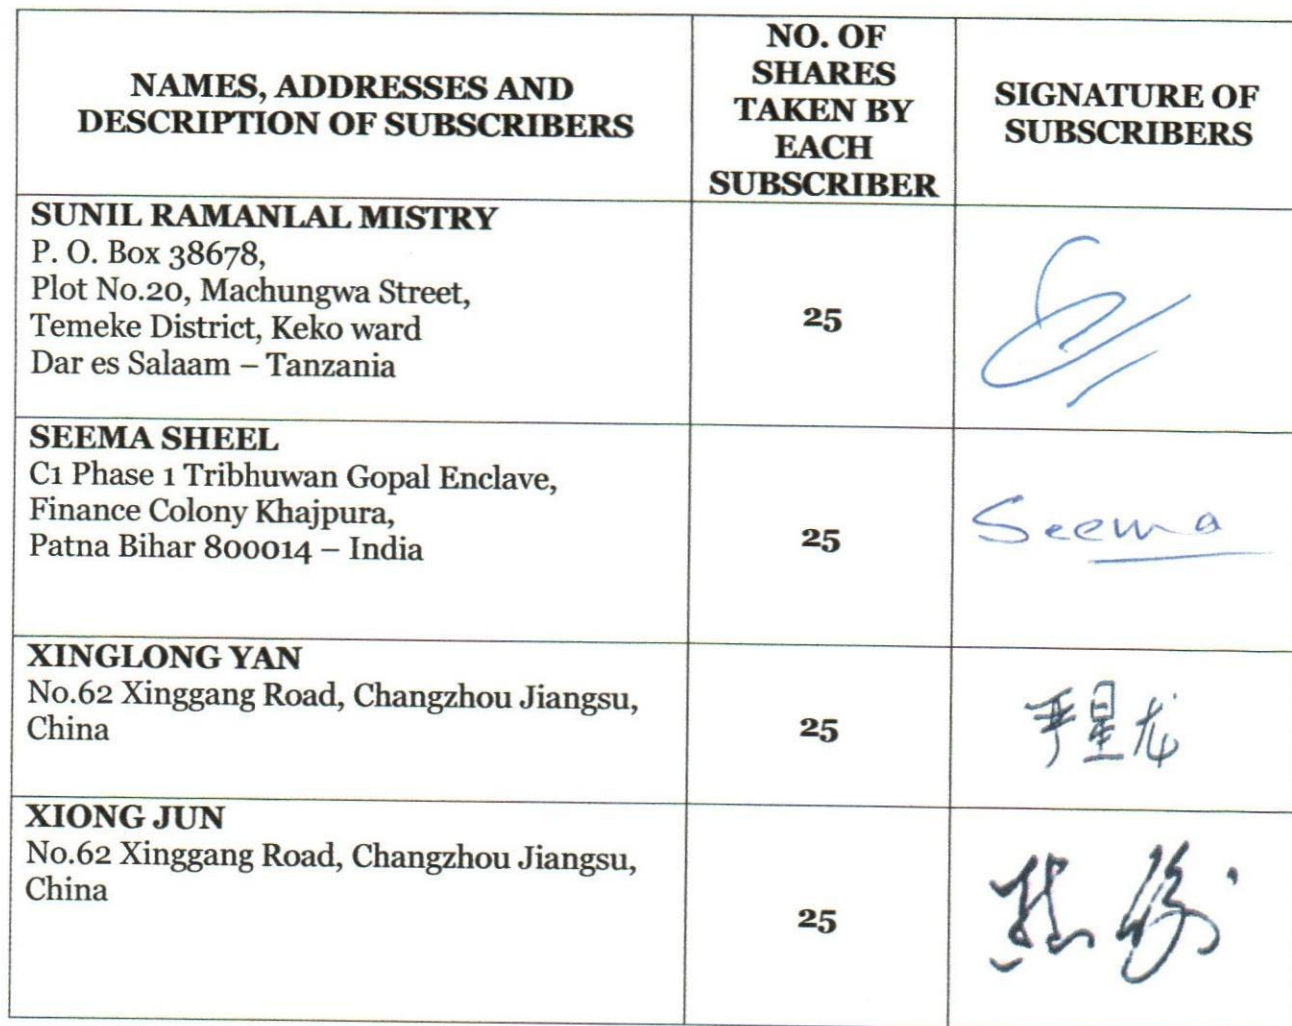 NAMES, ADDRESSES AND
DESCRIPTION OF SUBSCRIBERS
NO. OF
SHARES
TAKEN BY
EACH
SUBSCRIBER
SIGNATURE OF
SUBSCRIBERS
SUNIL RAMANLAL MISTRY
P. O. Box 38678,
Plot No.20, Machungwa Street,
Temeke District, Keko ward
Dar es Salaam – Tanzania
25
SEEMA SHEEL
C1 Phase 1 Tribhuwan Gopal Enclave,
Finance Colony Khajpura,
Patna Bihar 800014 – India
25
Seema
XINGLONG YAN
No.62 Xinggang Road, Changzhou Jiangsu,
China
25
严星龙
XIONG JUN
No.62 Xinggang Road, Changzhou Jiangsu,
China
25